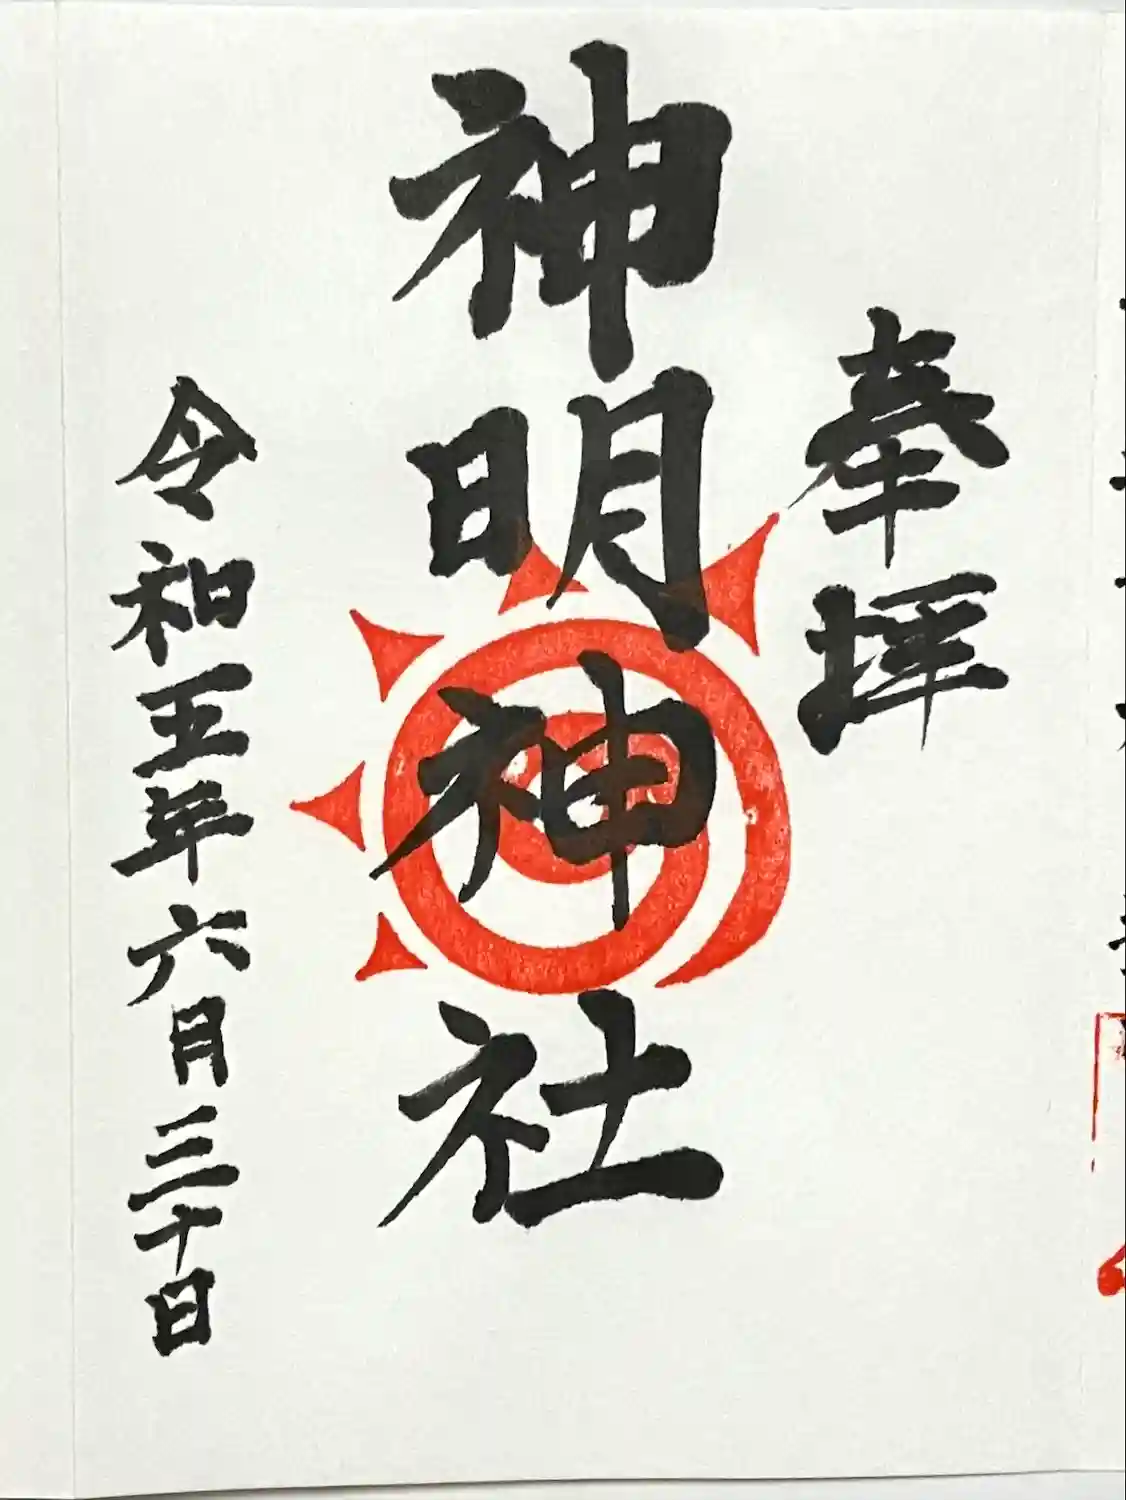 奉拝
神明神社
令和五年六月三十日